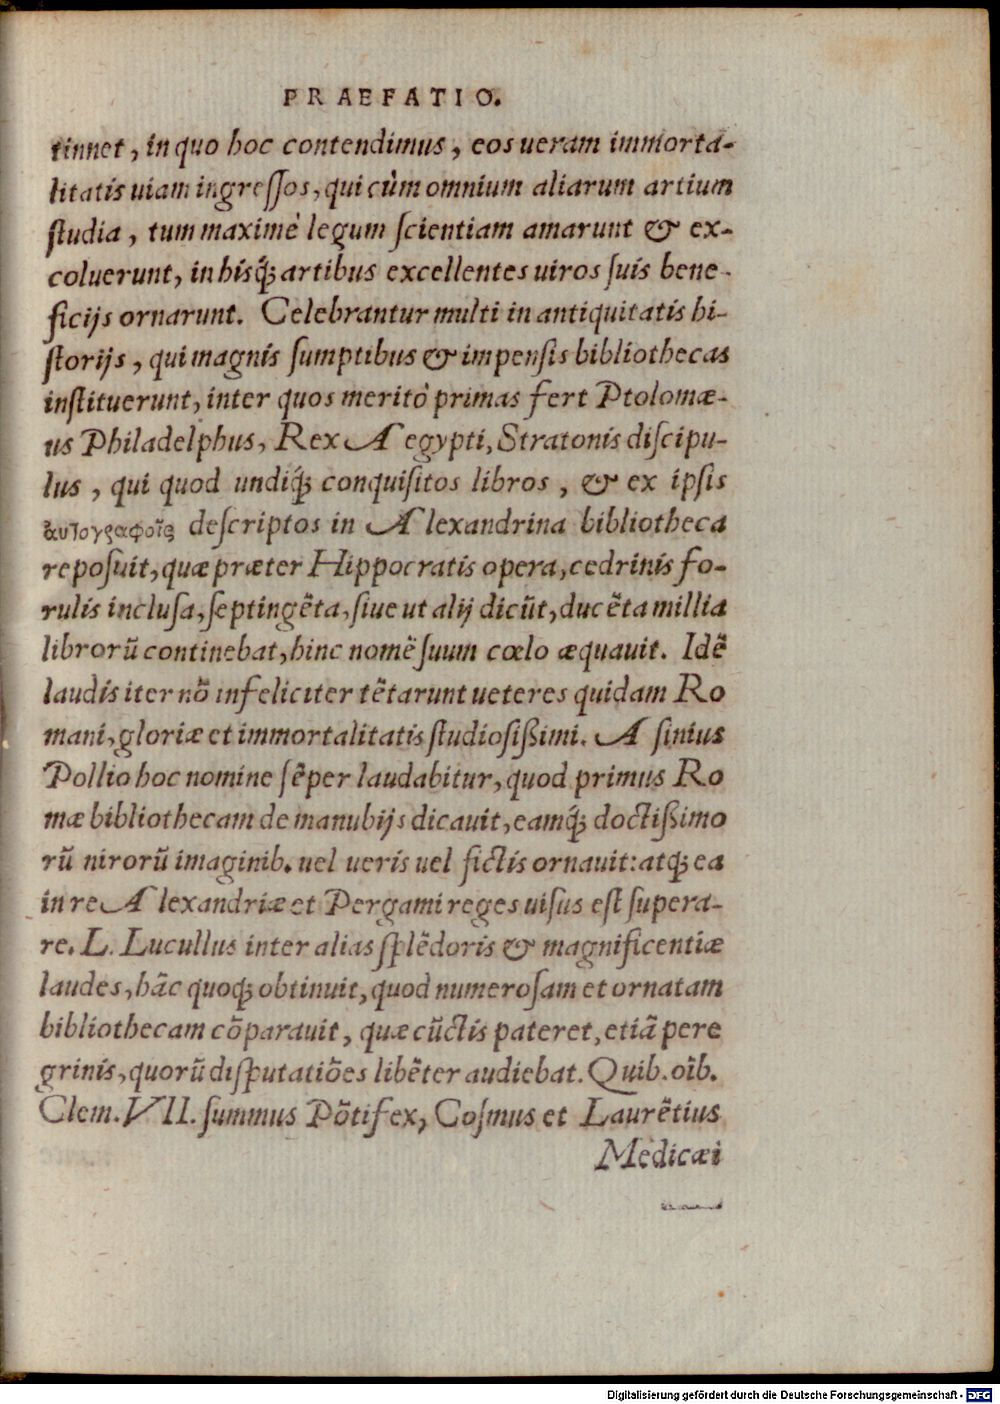 PRAEFATIO.
tinnet, in quo hoc contendimus, eos ueram immorta-
litatis uiam ingreſſos, qui cùm omnium aliarum artium
ſtudia, tum maximè legum ſcientiam amarunt & ex-
coluerunt, in hisq́; artibus excellentes uiros ſuis bene-
ficijs ornarunt. Celebrantur multi in antiquitatis hi-
ſtorijs, qui magnis ſumptibus & impenſis bibliothecas
inſtituerunt, inter quos meritò primas fert Ptolomæ-
us Philadelphus, Rex Aegypti, Stratonis diſcipu-
lus, qui quod undiq́; conquiſitos libros, & ex ipſis
ἀυτογραφοῖς deſcriptos in Alexandrina bibliotheca
repoſuit, quæ præter Hippocratis opera, cedrinis fo-
rulis incluſa, ſeptingẽta, ſiue ut alij dicũt, ducẽta millia
librorũ continebat, hinc nomẽ ſuum cœlo æquauit. Idẽ
laudis iter nõ infeliciter tẽtarunt ueteres quidam Ro
mani, gloriæ et immortalitatis ſtudioſißimi. Aſinius
Pollio hoc nomine ſẽper laudabitur, quod primus Ro
mæ bibliothecam de manubijs dicauit, eamq́; doctißimo
rũ nirorũ imaginib. uel ueris uel fictis ornauit: atq; ea
in re Alexandriæ et Pergami reges uiſus eſt ſupera-
re. L. Lucullus inter alias ſplẽdoris & magnificentiæ
laudes, hãc quoq; obtinuit, quod numeroſam et ornatam
bibliothecam cõparauit, quæ cũctis pateret, etiã pere
grinis, quorũ diſputatiões libẽter audiebat. Quib. oĩb.
Clem. VII. ſummus Põtifex, Coſmus et Laurẽtius
Medicæi
Digitalisierung gefördert durch die Deutsche Forschungsgemeinschaft - DFG